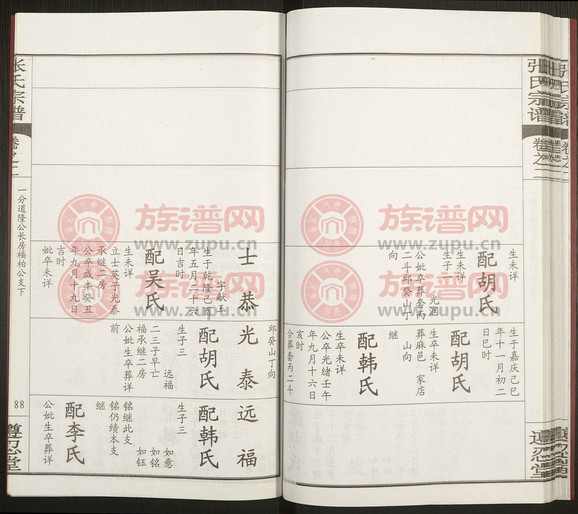 张氏宗谱
卷之二
配胡氏
生未详
生未详
生子一
元泗
公妣卒葬丙
二斗邱癸山丁
向
生于嘉庆己巳
年十一月初二
日巳时
配胡氏
生卒未详
葬麻邑
家店
山向
继
配韩氏
生卒未详
公卒光绪壬午
年九月十六日
亥时
合葬套丙二斗
遵忍堂
邱癸山丁向
士恭
字献玉
生于乾隆己酉
年五月二十六
日吉时
配吴氏
生未详
立士英子光泰
承继二房
公卒咸丰癸丑
年九月十九日
吉时
妣卒未详
光泰
配胡氏
生子三
远福
二三子早亡
福承继二房
公妣生卒葬详
前
远福
配韩氏
生子三
如意
如铭
如钰
铭继此支
铭仍绩本支
继
配李氏
公妣生卒葬详
张氏宗谱
卷之二
一分道隆公长房福柏公支下
88
遵忍堂
族谱网
www.zupu.cn
族谱网
www.zupu.cn
族谱网
www.zupu.cn
族谱网
www.zupu.cn